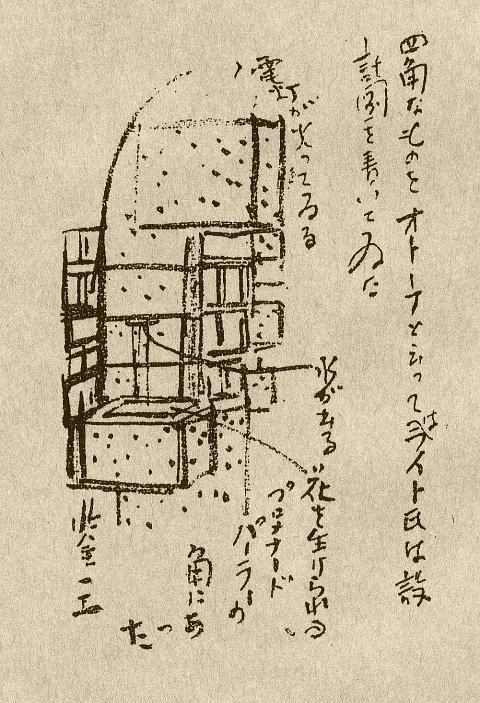 四角なものをオトーテと云ってはライト氏は設
計図を書いてゐた
電灯が光ってゐる
水がある
花を生けられる
プロムナード
パーラーの
角にあ
った